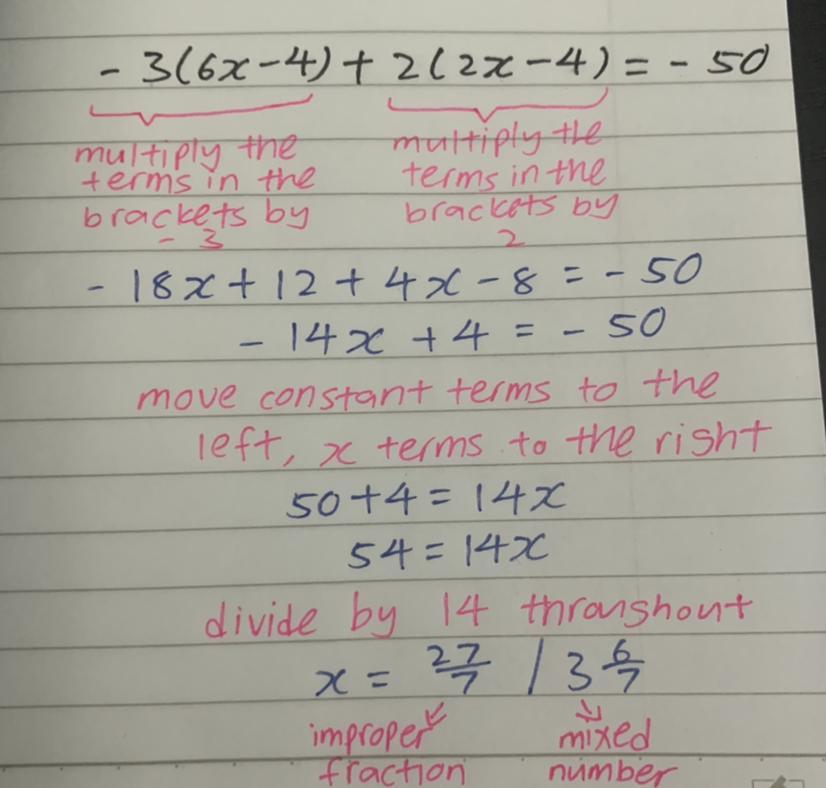 - 3(6x-4) + 2(2x-4) = - 50
multiply the multiply the
terms in the terms in the
brackets by brackets by
- 3 2
- 18x + 12 + 4x - 8 = - 50
- 14x + 4 = - 50
move constant terms to the
left, x terms to the right
50 + 4 = 14x
54 = 14x
divide by 14 throughout
x = 27/7 / 3 6/7
improper mixed
fraction number